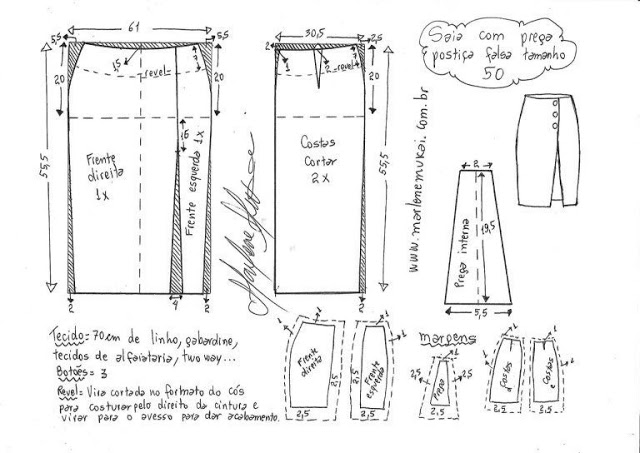 Saia com prega
postiça falsa tamanho
50
61
5,5
5,5
20
20
55,5
1,5
revel
3
16
Frente
direita
1x
Frente esquerda 1x
2
4
2
30,5
2,5
2
20
55,5
1
2
revel
3
Costas
Cortar
2x
2
www.marlenemukai.com.br
2
19,5
Prega interna
5,5
Tecido= 70 cm de linho, gabardine,
tecidos de alfaiataria, two way...
Botões= 3
Revel= Vira cortada no formato do cós
para costurar pelo direito da cintura e
virar para o avesso para dar acabamento.
margens
1
1
Frente
direita
2,5
2,5
1
Frente
esquerda
2,5
2,5
1
Prega
2,5
2,5
2,5
1
Costas
2,5
1
Costas
2,5